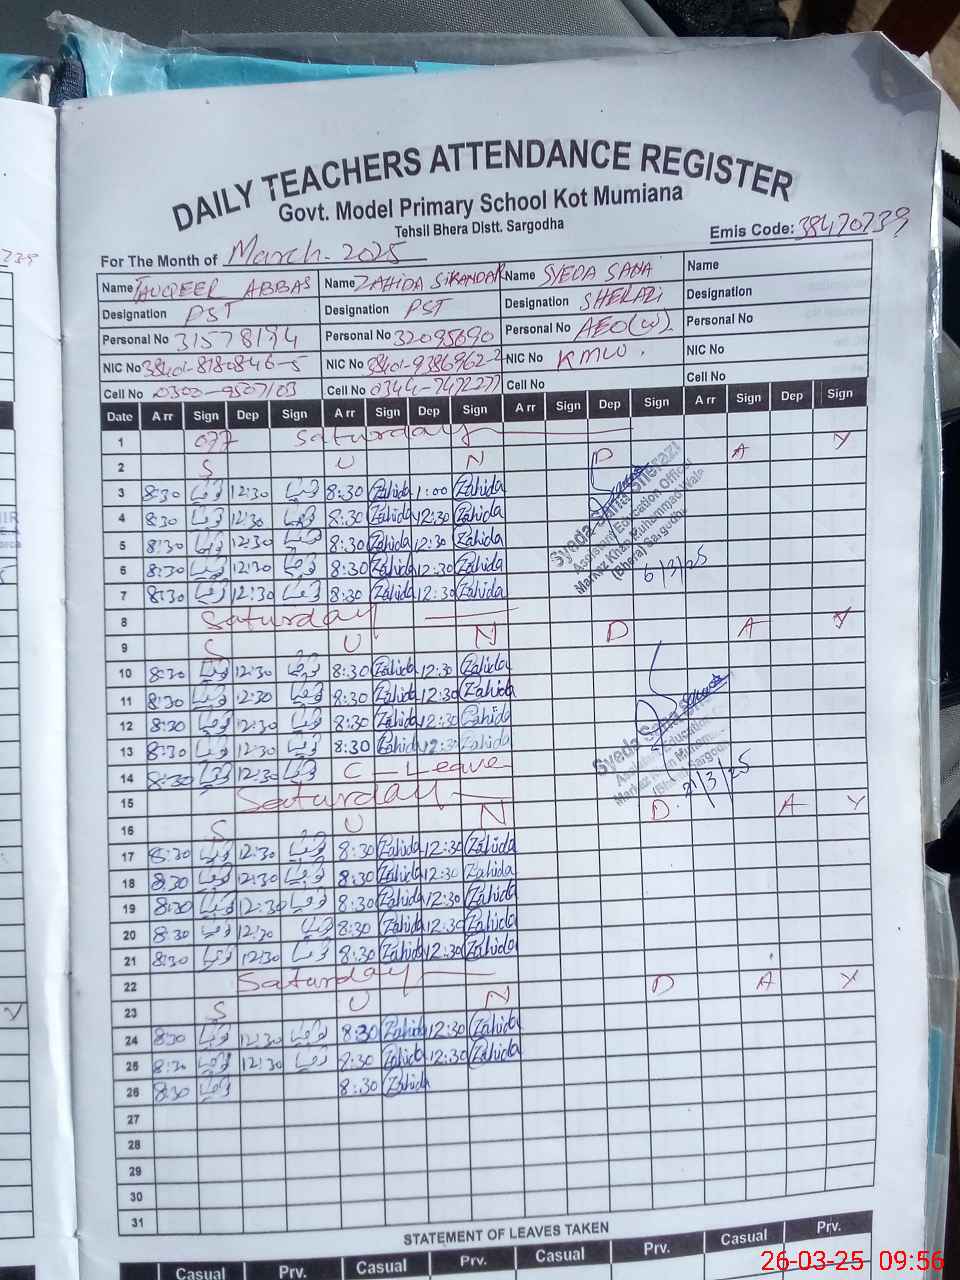 DAILY TEACHERS ATTENDANCE REGISTER
Govt. Model Primary School Kot Mumiana
Tehsil Bhera Distt. Sargodha
Emis Code: 38470739
For The Month of March-2025
Name TAUQEER ABBAS Name ZAHIDA SIKANDAR Name SYEDA SANA Name
Designation PST Designation PST Designation SHERAZI Designation
Personal No 31578194 Personal No 32095690 Personal No AEO(W) Personal No
NIC No 38401-8180846-5 NIC No 38401-9386962-2 NIC No KMW. NIC No
Cell No 0300-9507103 Cell No 0344-7472277 Cell No Cell No
Date Arr Sign Dep Sign Arr Sign Dep Sign Arr Sign Dep Sign Arr Sign Dep Sign
1 Saturday
2 S U N D A Y
3 8:30 12:30 8:30 Zahida 1:00 Zahida
4 8:30 12:30 8:30 Zahida 12:30 Zahida
5 8:30 12:30 8:30 Zahida 12:30 Zahida
6 8:30 12:30 8:30 Zahida 12:30 Zahida
7 8:30 12:30 8:30 Zahida 12:30 Zahida
Syeda Sana Sherazi
Assistant Education Officer
Markaz Khan Muhammad Wala
(Bhera) Sargodha
6/3/25
8 Saturday
9 S U N D A Y
10 8:30 12:30 8:30 Zahida 12:30 Zahida
11 8:30 12:30 8:30 Zahida 12:30 Zahida
12 8:30 12:30 8:30 Zahida 12:30 Zahida
13 8:30 12:30 8:30 Zahida 12:30 Zahida
14 8:30 12:30 C-Leave
Syeda Sana
21/3/25
15 Saturday
16 S U N D A Y
17 8:30 12:30 8:30 Zahida 12:30 Zahida
18 8:30 12:30 8:30 Zahida 12:30 Zahida
19 8:30 12:30 8:30 Zahida 12:30 Zahida
20 8:30 12:30 8:30 Zahida 12:30 Zahida
21 8:30 12:30 8:30 Zahida 12:30 Zahida
22 Saturday
23 S U N D A Y
24 8:30 12:30 8:30 Zahida 12:30 Zahida
25 8:30 12:30 8:30 Zahida 12:30 Zahida
26 8:30 8:30 Zahida
27
28
29
30
31
STATEMENT OF LEAVES TAKEN
Casual Prv. Casual Prv. Casual Prv. Casual Prv.
26-03-25 09:56